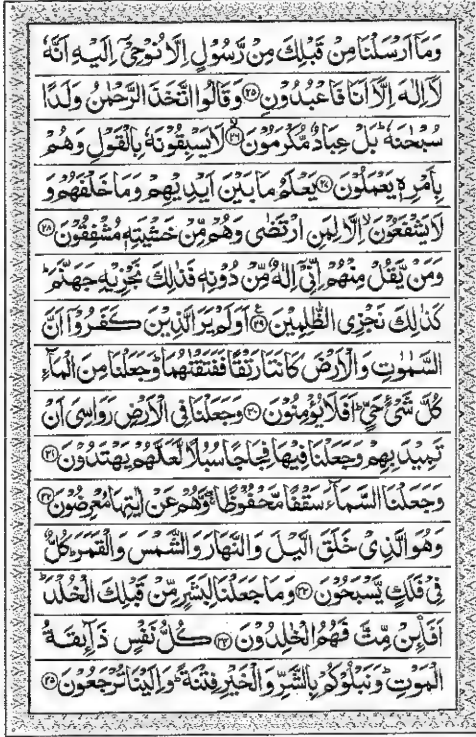 وَمَاۤ اَرۡسَلۡنَا مِنۡ قَبۡلِكَ مِنۡ رَّسُوۡلٍ اِلَّا نُوۡحِىۡۤ اِلَيۡهِ اَنَّهٗ
لَاۤ اِلٰهَ اِلَّاۤ اَنَا فَاعۡبُدُوۡنِ ۲۵ وَقَالُوا اتَّخَذَ الرَّحۡمٰنُ وَلَدًا
سُبۡحٰنَهٗ ؕ بَلۡ عِبَادٌ مُّكۡرَمُوۡنَ ۙ ۲۶ لَا يَسۡبِقُوۡنَهٗ بِالۡقَوۡلِ وَهُمۡ
بِاَمۡرِهٖ يَعۡمَلُوۡنَ ۲۷ يَعۡلَمُ مَا بَيۡنَ اَيۡدِيۡهِمۡ وَمَا خَلۡفَهُمۡ وَ
لَا يَشۡفَعُوۡنَ ۙ اِلَّا لِمَنِ ارۡتَضٰى وَهُمۡ مِّنۡ خَشۡيَتِهٖ مُشۡفِقُوۡنَ ۲۸
وَمَنۡ يَّقُلۡ مِنۡهُمۡ اِنِّىۡۤ اِلٰهٌ مِّنۡ دُوۡنِهٖ فَذٰلِكَ نَجۡزِيۡهِ جَهَنَّمَ ؕ
كَذٰلِكَ نَجۡزِى الظّٰلِمِيۡنَ ۲۹ اَوَلَمۡ يَرَ الَّذِيۡنَ كَفَرُوۡۤا اَنَّ
السَّمٰوٰتِ وَالۡاَرۡضَ كَانَتَا رَتۡقًا فَفَتَقۡنٰهُمَا ؕ وَجَعَلۡنَا مِنَ الۡمَآءِ
كُلَّ شَىۡءٍ حَىٍّ ؕ اَفَلَا يُؤۡمِنُوۡنَ ۳۰ وَجَعَلۡنَا فِى الۡاَرۡضِ رَوَاسِىَ اَنۡ
تَمِيۡدَ بِهِمۡ وَجَعَلۡنَا فِيۡهَا فِجَاجًا سُبُلًا لَّعَلَّهُمۡ يَهۡتَدُوۡنَ ۳۱
وَجَعَلۡنَا السَّمَآءَ سَقۡفًا مَّحۡفُوۡظًا ۖۚ وَّهُمۡ عَنۡ اٰيٰتِهَا مُعۡرِضُوۡنَ ۳۲
وَهُوَ الَّذِىۡ خَلَقَ الَّيۡلَ وَالنَّهَارَ وَالشَّمۡسَ وَالۡقَمَرَ ؕ كُلٌّ
فِىۡ فَلَكٍ يَّسۡبَحُوۡنَ ۳۳ وَمَا جَعَلۡنَا لِبَشَرٍ مِّنۡ قَبۡلِكَ الۡخُلۡدَ ؕ
اَفَا۟ئِنۡ مِّتَّ فَهُمُ الۡخٰلِدُوۡنَ ۳۴ كُلُّ نَفۡسٍ ذَآئِقَةُ
الۡمَوۡتِ ؕ وَنَبۡلُوۡكُمۡ بِالشَّرِّ وَالۡخَيۡرِ فِتۡنَةً ؕ وَاِلَيۡنَا تُرۡجَعُوۡنَ ۳۵